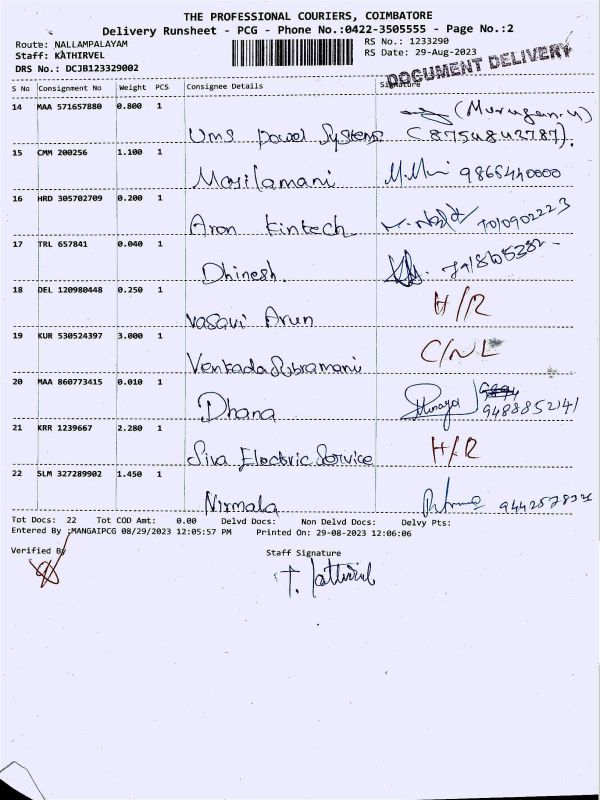 THE PROFESSIONAL COURIERS, COIMBATORE
Delivery Runsheet - PCG - Phone No.:0422-3505555 - Page No.:2
Route: NALLAMPALAYAM RS No.: 1233290
Staff: KATHIRVEL RS Date: 29-Aug-2023
DRS No.: DCJB123329002 DOCUMENT DELIVERY
S No Consignment No Weight PCS Consignee Details Signature
14 MAA 571657880 0.800 1 (Murugan.u)
Ums Powel Systems (8754843787).
15 CMM 200256 1.100 1
Masilamani 9865440000
16 HRD 305702709 0.200 1
Aron Kintech 7010902223
17 TRL 657841 0.040 1
Dhinesh.
18 DEL 120980448 0.250 1 H/R
Vasavi Arun
19 KUR 530524397 3.000 1 C/NL
Venkadasubramani
20 MAA 860773415 0.010 1
Dhana 9488852141
21 KRR 1239667 2.280 1 H/R
Siva Electric Service
22 SLM 327289902 1.450 1
Nirmala
Tot Docs: 22 Tot COD Amt: 0.00 Delvd Docs: Non Delvd Docs: Delvy Pts:
Entered By :MANGAIPCG 08/29/2023 12:05:57 PM Printed On: 29-08-2023 12:06:06
Verified By Staff Signature